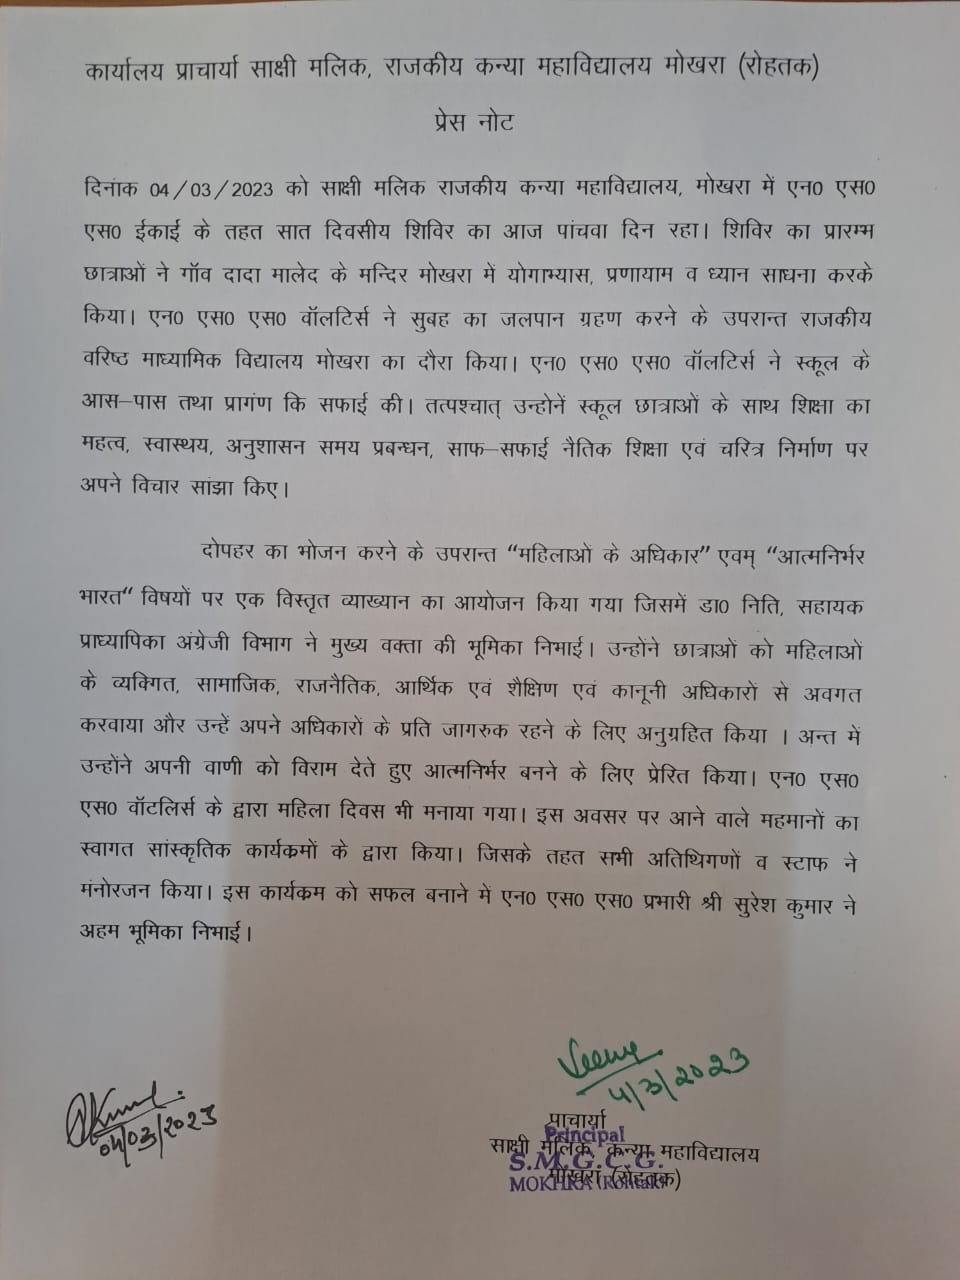 कार्यालय प्राचार्या साक्षी मलिक, राजकीय कन्या महाविद्यालय मोखरा (रोहतक)
प्रेस नोट
दिनांक 04/03/2023 को साक्षी मलिक राजकीय कन्या महाविद्यालय, मोखरा में एन0 एस0
एस0 ईकाई के तहत सात दिवसीय शिविर का आज पांचवा दिन रहा। शिविर का प्रारम्भ
छात्राओं ने गॉव दादा मालेद के मन्दिर मोखरा में योगाभ्यास, प्रणायाम व ध्यान साधना करके
किया। एन0 एस0 एस0 वॉलटिर्स ने सुबह का जलपान ग्रहण करने के उपरान्त राजकीय
वरिष्ठ माध्यामिक विद्यालय मोखरा का दौरा किया। एन0 एस0 एस0 वॉलटिर्स ने स्कूल के
आस–पास तथा प्रागंण कि सफाई की। तत्पश्चात् उन्होनें स्कूल छात्राओं के साथ शिक्षा का
महत्व, स्वास्थय, अनुशासन समय प्रबन्धन, साफ–सफाई नैतिक शिक्षा एवं चरित्र निर्माण पर
अपने विचार सांझा किए।
दोपहर का भोजन करने के उपरान्त “महिलाओं के अधिकार” एवम् “आत्मनिर्भर
भारत“ विषयों पर एक विस्तृत व्याख्यान का आयोजन किया गया जिसमें डा0 निति, सहायक
प्राध्यापिका अंग्रेजी विभाग ने मुख्य वक्ता की भूमिका निभाई। उन्होंने छात्राओं को महिलाओं
के व्यक्गित, सामाजिक, राजनैतिक, आर्थिक एवं शैक्षिण एवं कानूनी अधिकारों से अवगत
करवाया और उन्हें अपने अधिकारों के प्रति जागरुक रहने के लिए अनुग्रहित किया । अन्त में
उन्होंने अपनी वाणी को विराम देते हुए आत्मनिर्भर बनने के लिए प्रेरित किया। एन0 एस0
एस0 वॉटलिर्स के द्वारा महिला दिवस भी मनाया गया। इस अवसर पर आने वाले महमानों का
स्वागत सांस्कृतिक कार्यकमों के द्वारा किया। जिसके तहत सभी अतिथिगणों व स्टाफ ने
मंनोरजन किया। इस कार्यकम को सफल बनाने में एन0 एस0 एस0 प्रभारी श्री सुरेश कुमार ने
अहम भूमिका निभाई।
04/03/2023
4/3/2023
प्राचार्या
Principal
साक्षी मलिक, कन्या महाविद्यालय
S.M.G.C.G.
मोखरा (रोहतक)
MOKHRA (Rohtak)